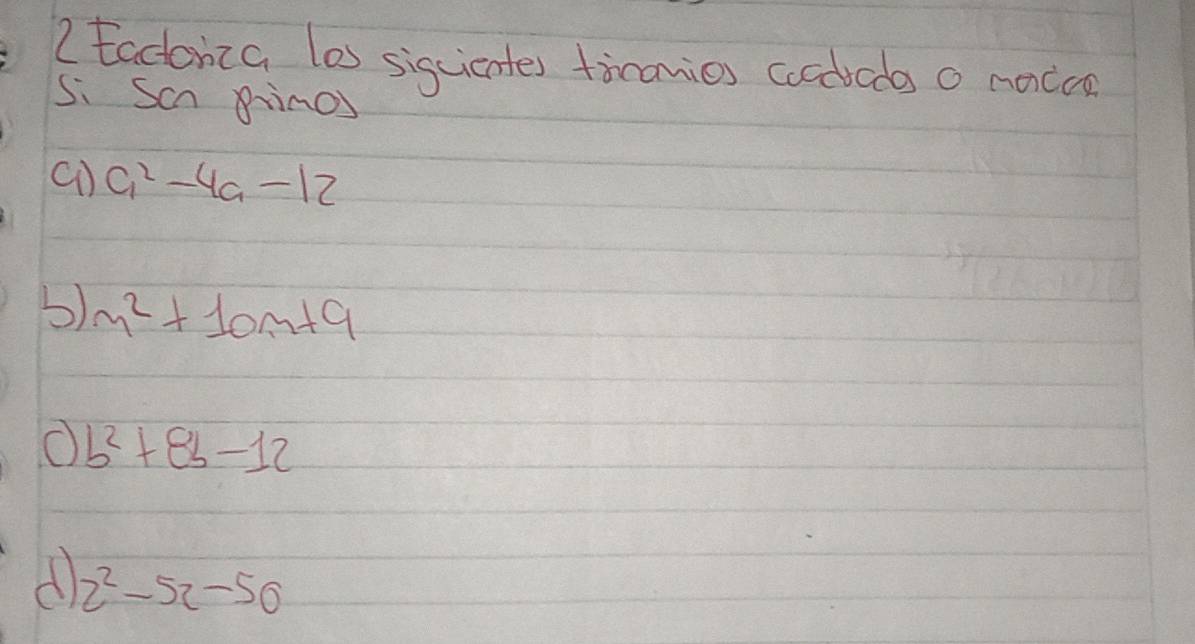 2 Factoriza los siguientes trinomios cuadrados o marca
si son primos
a) a² - 4a - 12
b) m² + 10m + 9
c) b² + 8b - 12
d) z² - 5z - 50